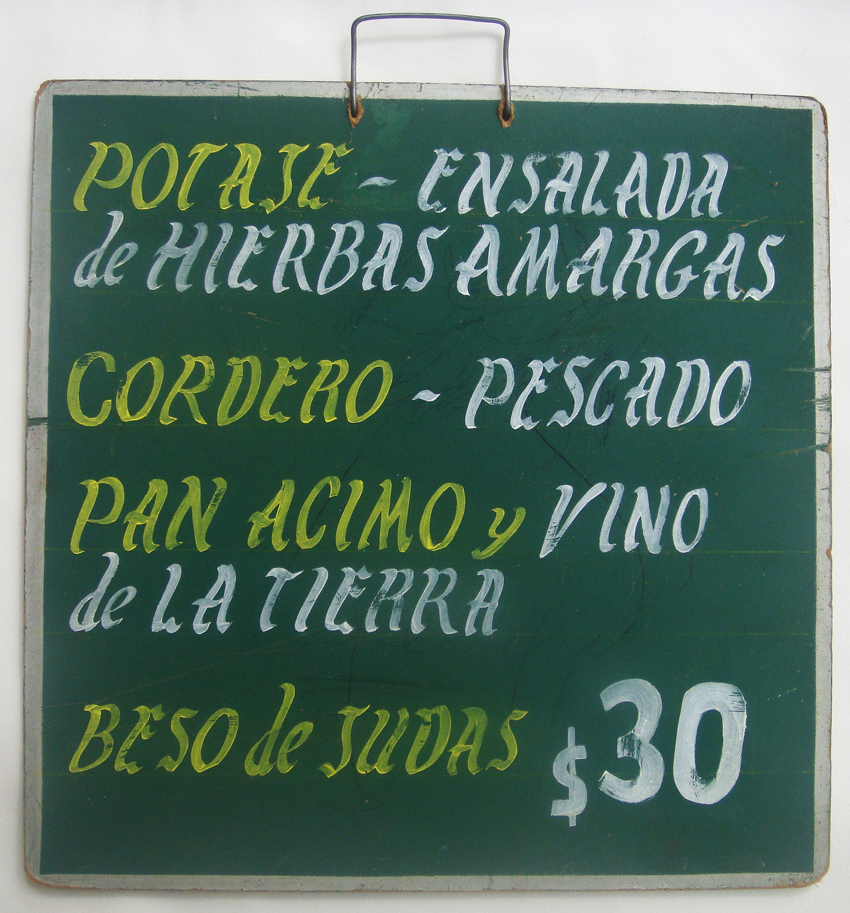 POTAJE - ENSALADA
de HIERBAS AMARGAS
CORDERO - PESCADO
PAN ACIMO y VINO
de LA TIERRA
BESO de JUDAS $30